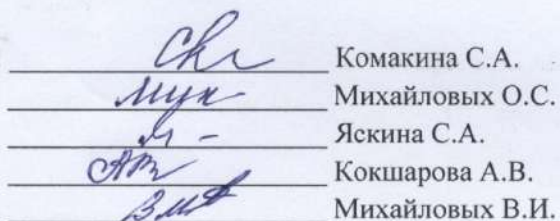 Комакина С.А.
Михайловых О.С.
Яскина С.А.
Кокшарова А.В.
Михайловых В.И.